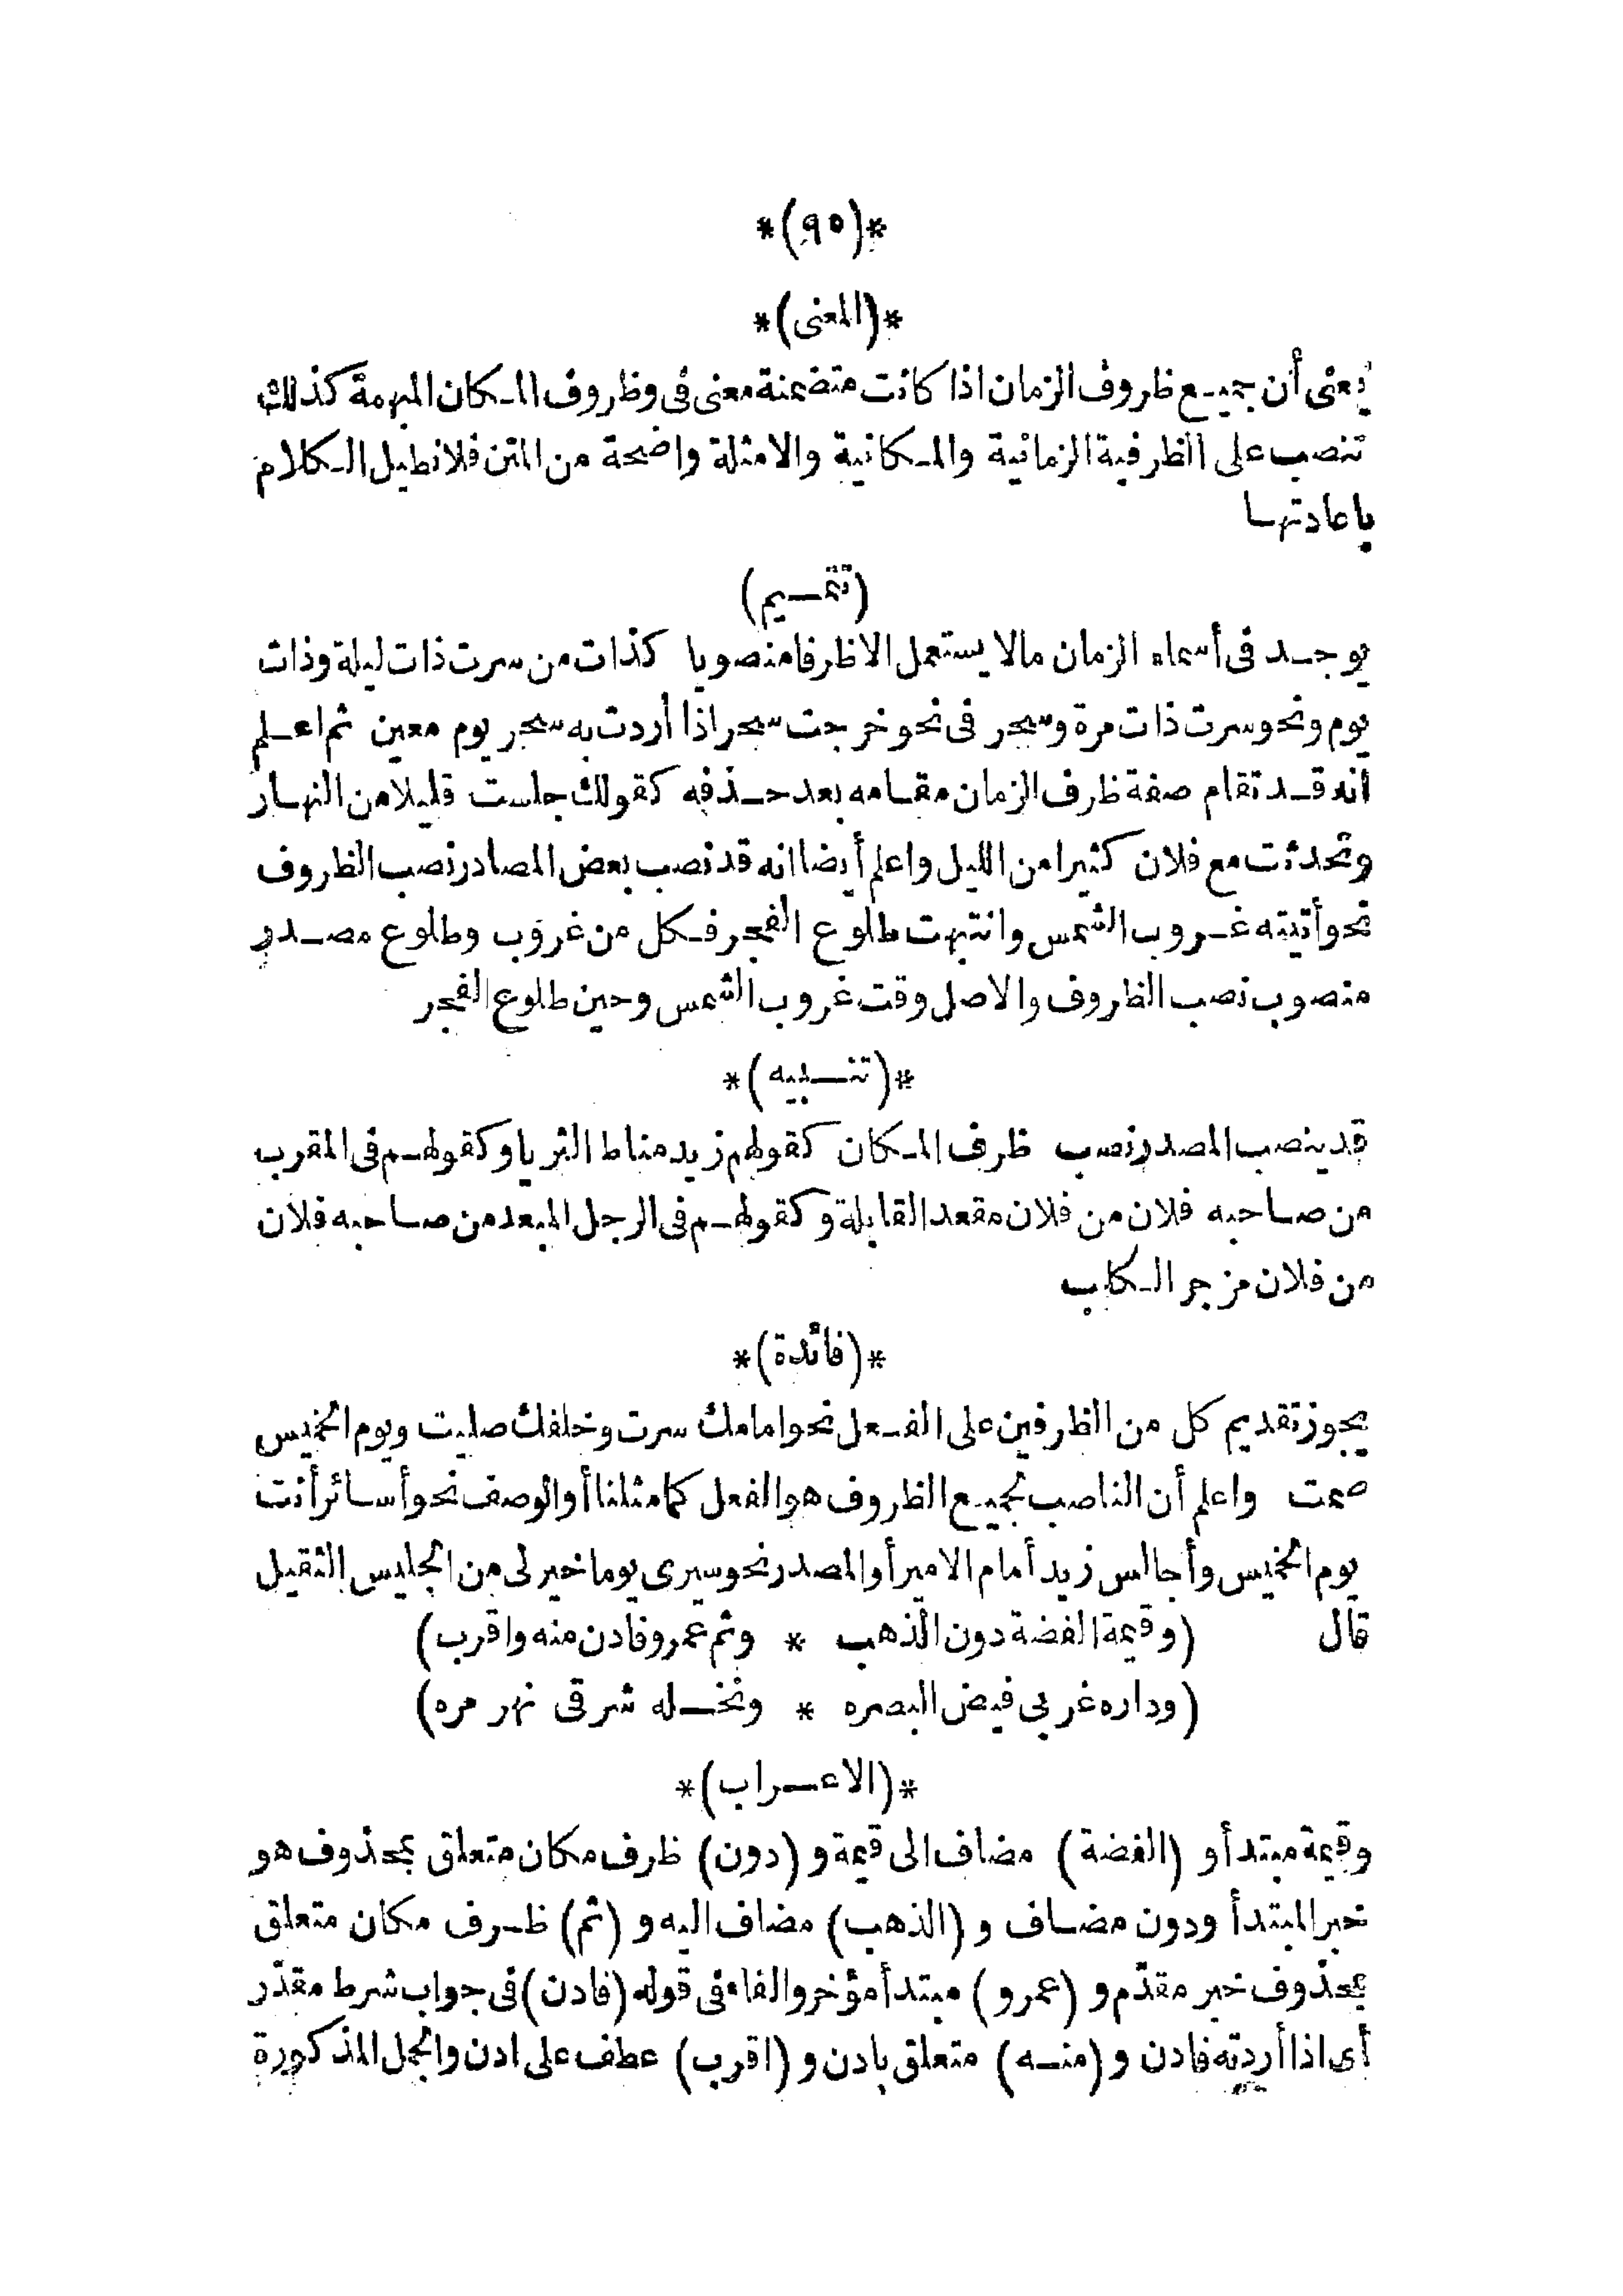 *(٩٥)*
*(المعنى)*
يعنى أن جميع ظروف الزمان اذا كانت متضمنة معنى فى وظروف المكان المبهمة كذلك
تنصب على الظرفية الزمانية والمكانية والامثلة واضحة من المتن فلا نطيل الكلام
باعادتها
(تقسيم)
يوجد فى أسماء الزمان مالا يستعمل الا ظرفا منصوبا كذات من سرت ذات ليلة وذات
يوم ونحو سرت ذات مرة وسحر فى نحو خرجت سحر اذا أردت به سحر يوم معين ثم اعلم
أنه قد تقام صفة ظرف الزمان مقامه بعد حذفه كقولك جلست قليلا من النهار
وتحدثت مع فلان كثيرا من الليل واعلم أيضا انه قد نصب بعض المصادر نصب الظروف
نحو أتيته غروب الشمس وانتبهت طلوع الفجر فكل من غروب وطلوع مصدر
منصوب نصب الظروف والاصل وقت غروب الشمس وحين طلوع الفجر
*(تنبيه)*
قد ينصب المصدر نصب ظرف المكان كقولهم زيد مناط الثريا وكقولهم فى المقرب
من صاحبه فلان من فلان مقعد القابلة وكقولهم فى الرجل المبعد من صاحبه فلان
من فلان مزجر الكلب
*(فائدة)*
يجوز تقديم كل من الظرفين على الفعل نحو امامك سرت وخلفك صليت ويوم الخميس
صمت واعلم أن الناصب لجميع الظروف هو الفعل كما مثلنا أو الوصف نحو أسائر أنت
يوم الخميس وأجالس زيد أمام الامير أو المصدر نحو سيرى يوما خير لى من الجليس الثقيل
قال (وقيمة الفضة دون الذهب * وثم عمرو فادن منه واقرب)
(وداره غربى فيض البصره * ونخله شرقى نهر مره)
*(الاعراب)*
وقيمة مبتدأ و (الفضة) مضاف الى قيمة و (دون) ظرف مكان متعلق بمحذوف هو
خبر المبتدأ ودون مضاف و (الذهب) مضاف اليه و (ثم) ظرف مكان متعلق
بمحذوف خبر مقدّم و (عمرو) مبتدأ مؤخر والفاء فى قوله (فادن) فى جواب شرط مقدّر
أى اذا أردته فادن و (منه) متعلق بادن و (اقرب) عطف على ادن والجمل المذكورة